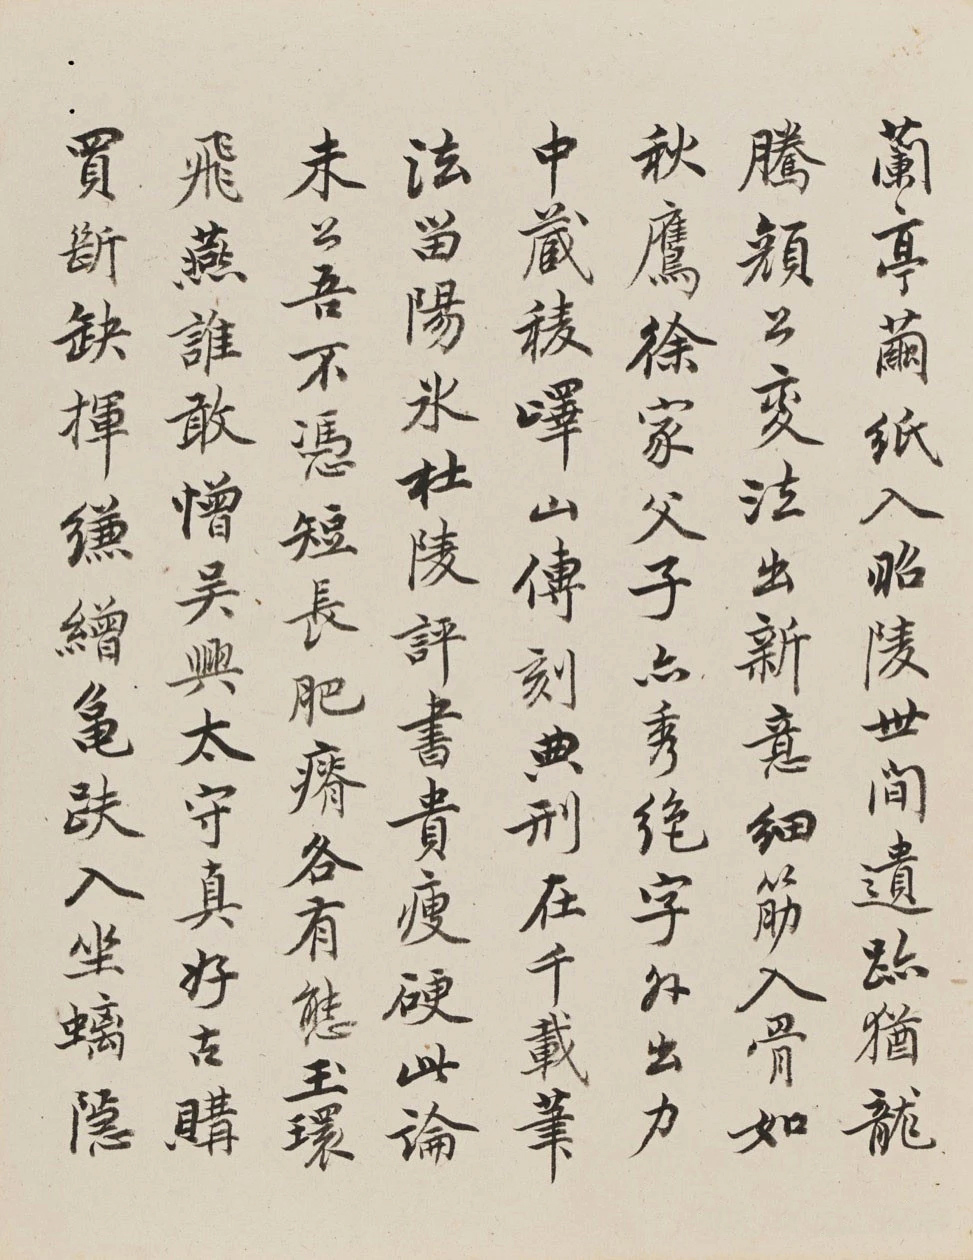 蘭亭繭紙入昭陵世間遺跡猶龍
騰顏公變法出新意細筋入骨如
秋鷹徐家父子亦秀絕字外出力
中藏稜嶧山傳刻典刑在千載筆
法留陽氷杜陵評書貴瘦硬此論
未公吾不憑短長肥瘠各有態玉環
飛燕誰敢憎吳興太守真好古購
買斷缺揮縑繒龜趺入坐螭隱